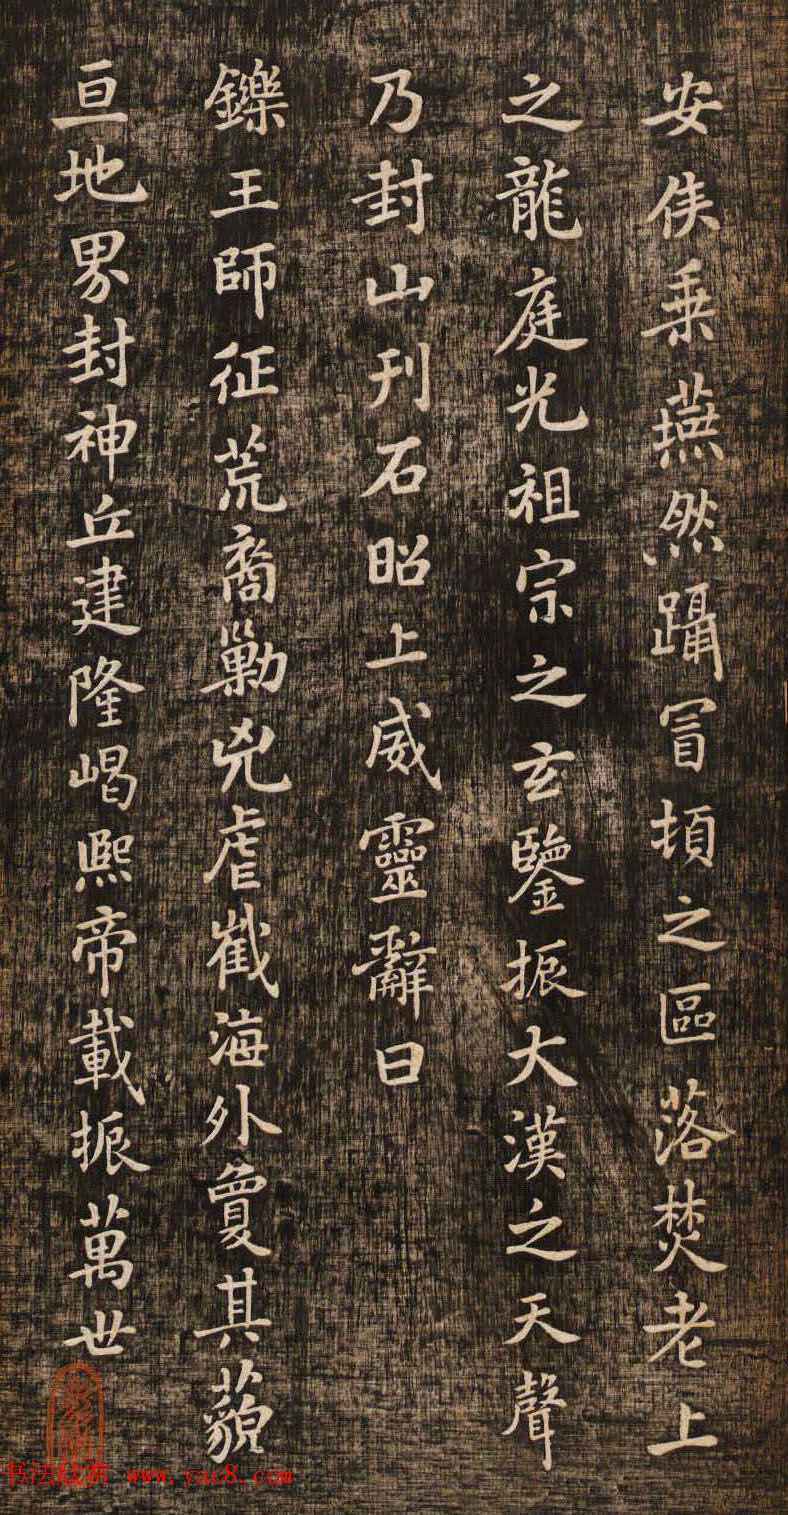 安侯乗燕然躡冒頓之區落焚老上
之龍庭光祖宗之玄鑒振大漢之天聲
乃封山刊石昭上威靈辭曰
鑠王師征荒裔勦兇虐截海外敻其藐
亘地界封神丘建隆嵑熙帝載振萬世
书法欣赏 www.yac8.com